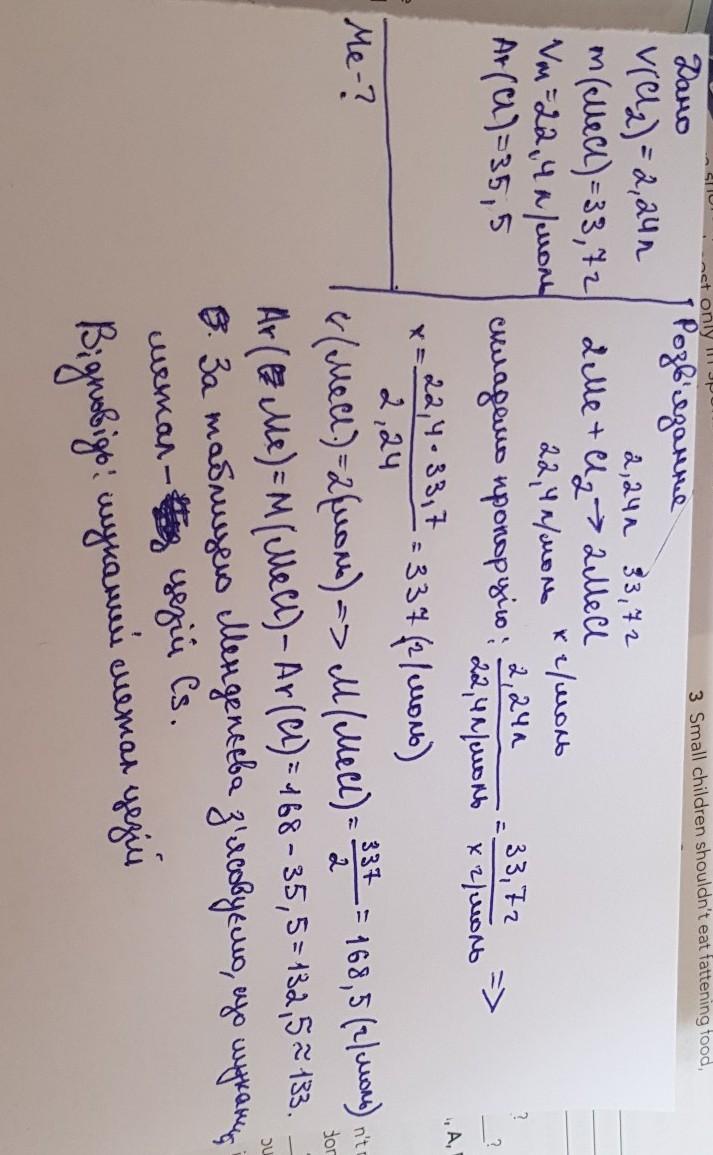 Дано
V(Cl2) = 2,24л
m(MeCl) = 33,7г
Vм = 22,4 л/моль
Ar(Cl) = 35,5
Me - ?
Розв'язання
2,24л 33,7г
2Me + Cl2 → 2MeCl
22,4л/моль x г/моль
складемо пропорцію: 2,24л / 22,4л/моль = 33,7г / x г/моль =>
x = 22,4 · 33,7 / 2,24 = 337 (г/моль)
ν(MeCl) = 2(моль) => M(MeCl) = 337 / 2 = 168,5 (г/моль)
Ar(Me) = M(MeCl) - Ar(Cl) = 168 - 35,5 = 132,5 ≈ 133.
За таблицею Менделєєва з'ясовуємо, що шуканий
метал - цезій Cs.
Відповідь: шуканий метал цезій
3 Small children shouldn't eat fattening food,